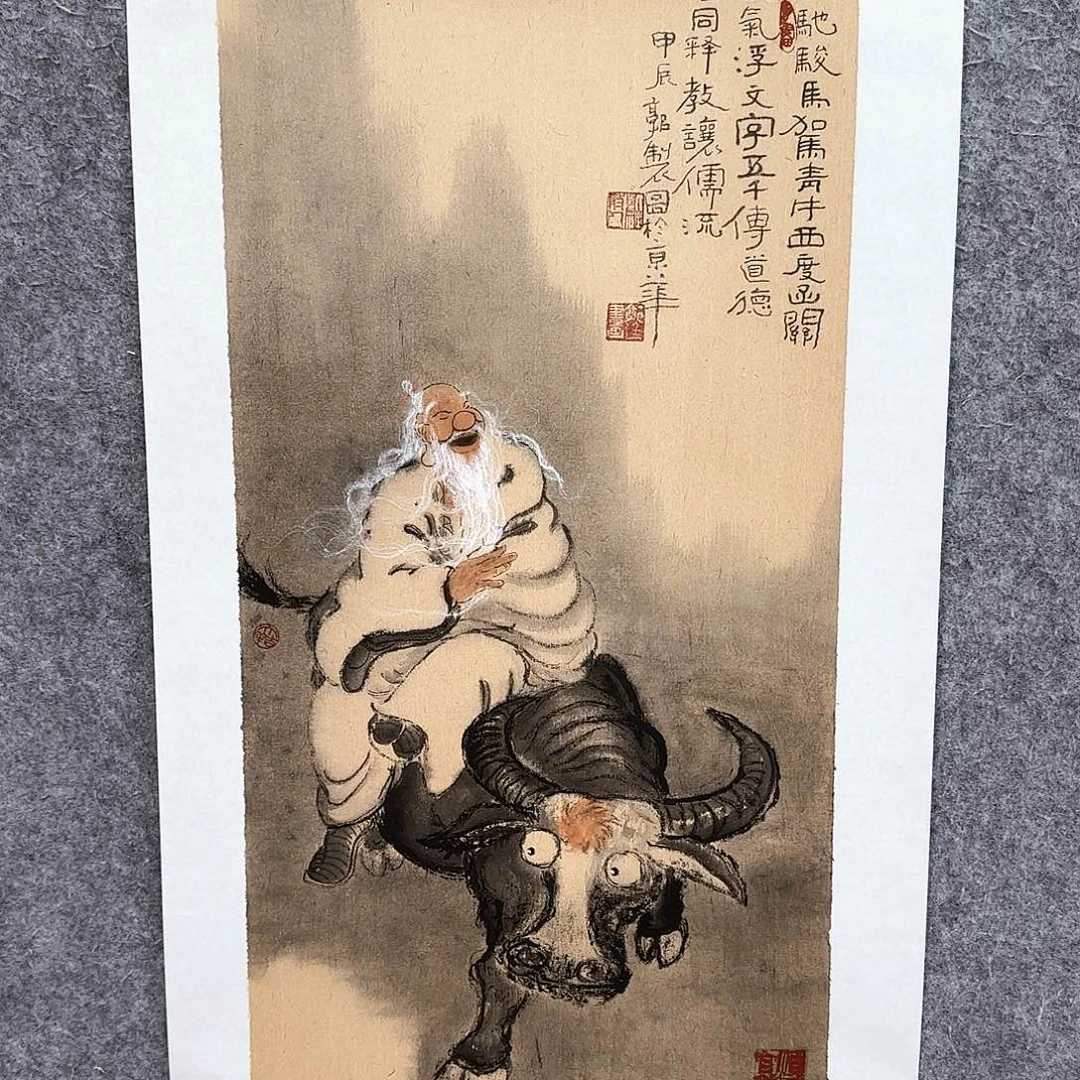 馳駿馬駕青牛西度函關
氣浮文字五千傳道德
同释教讓儒流
甲辰郭製圖於京華